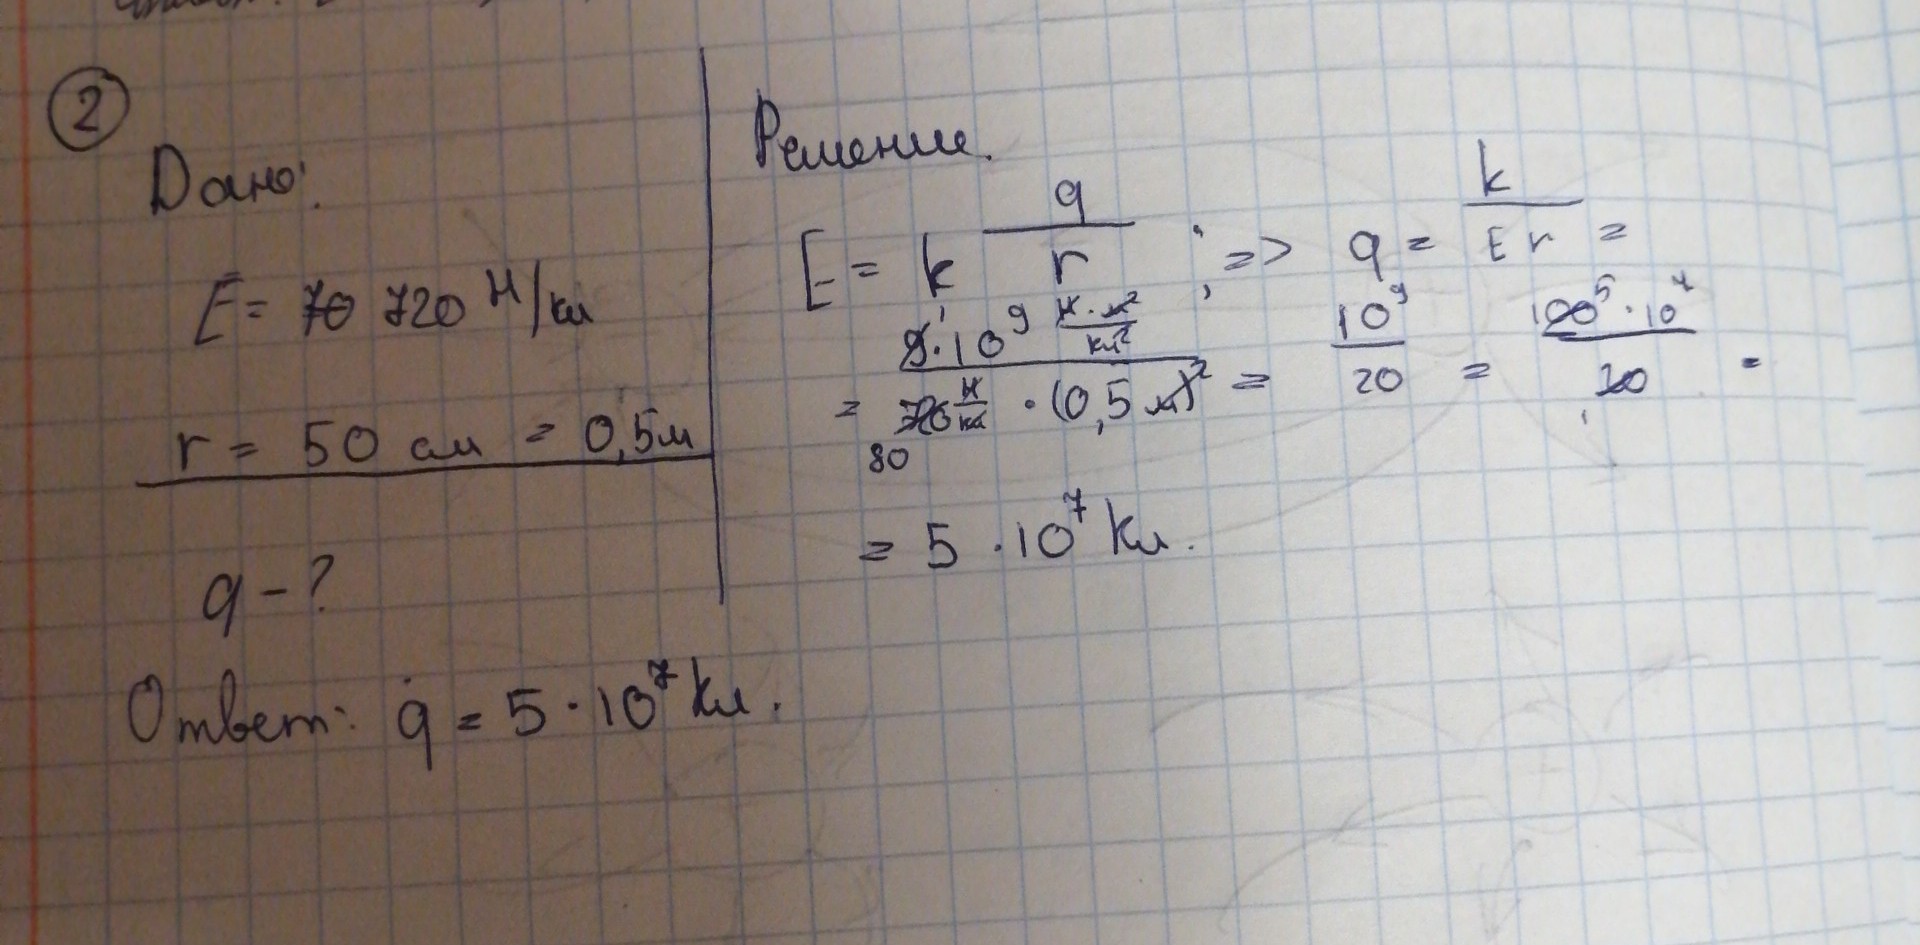 2
Дано:
E = 70 720 Н/кл
r = 50 см = 0,5м
q - ?
Решение.
E = k q / r ; => q = k / E r =
= 9·10⁹ Н·м²/кл² / 720 Н/кл · (0,5 м)² = 10⁹ / 20 = 100⁵ · 10⁷ / 20 =
80
= 5 · 10⁷ Кл.
Ответ: q = 5 · 10⁷ Кл.